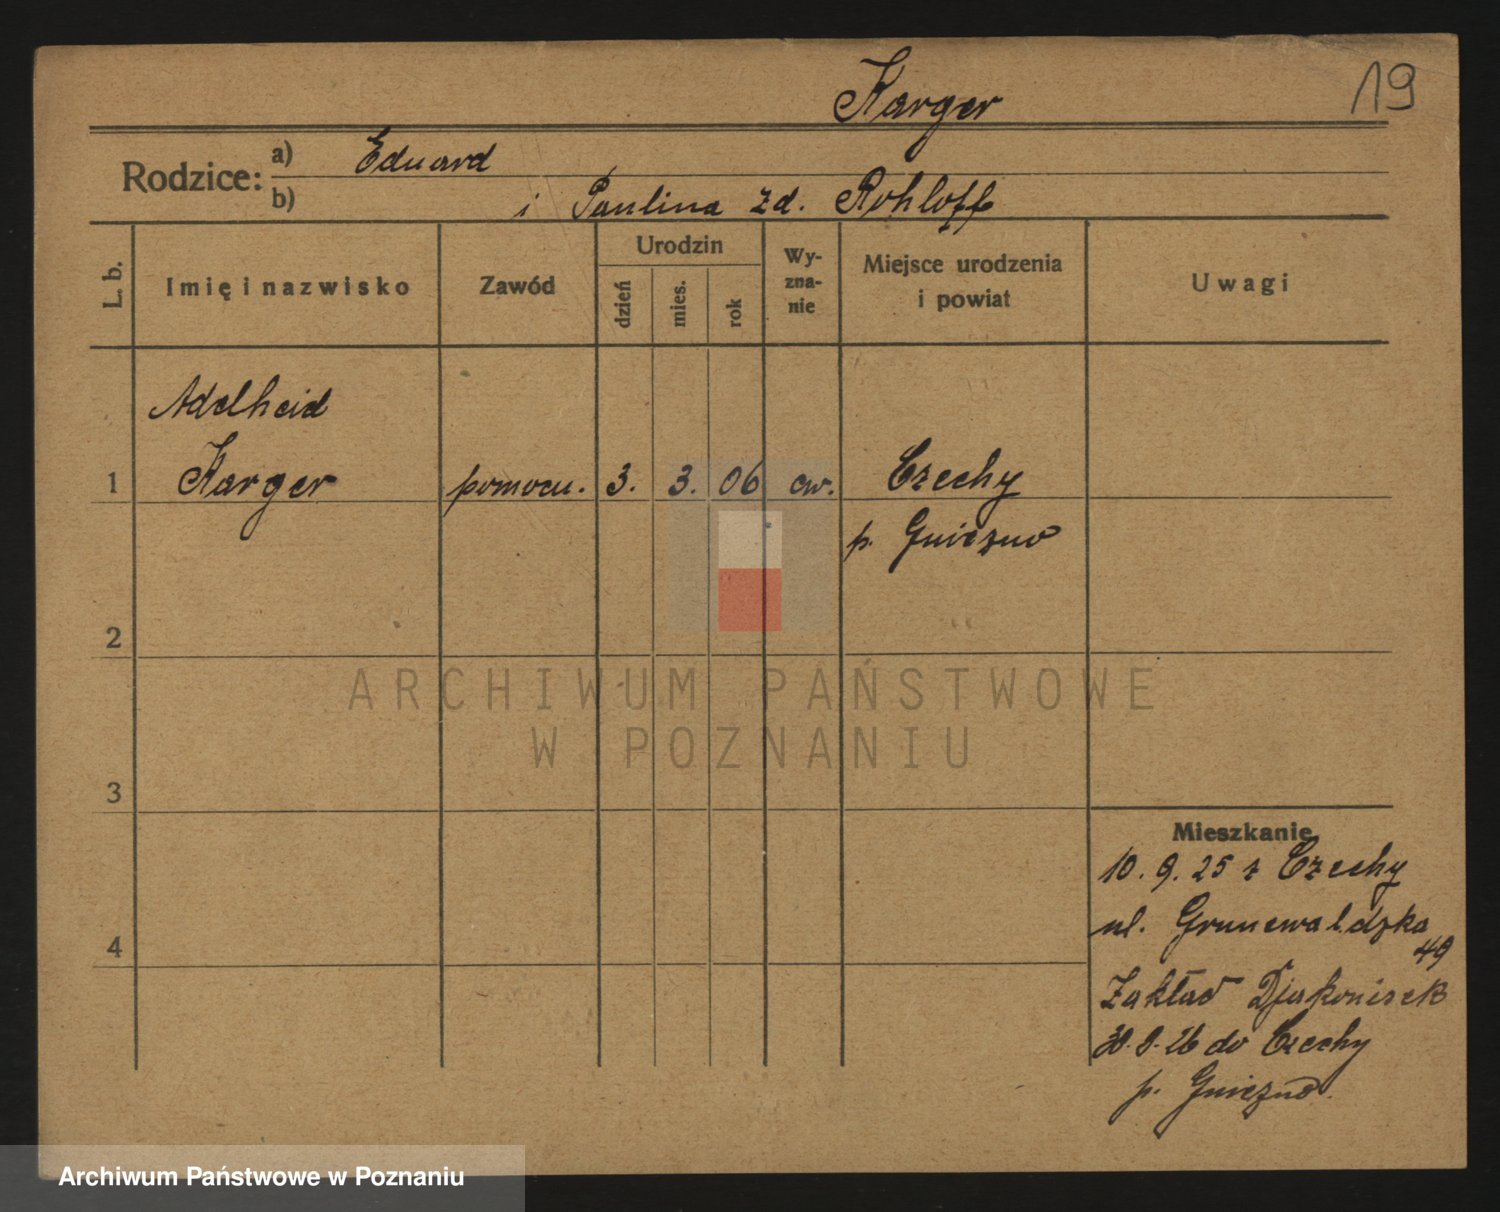 Karger
19
Rodzice: a) Eduard
b) i Paulina zd. Rohloff
L. b.
Imię i nazwisko
Zawód
Urodzin
dzień
mies.
rok
Wy-
zna-
nie
Miejsce urodzenia
i powiat
Uwagi
Adelheid
1 Karger pomocn. 3. 3. 06 ew. Czechy
p. Gniezno
2
ARCHIWUM PAŃSTWOWE
W POZNANIU
3
Mieszkanie
10. 9. 25 z Czechy
ul. Grunewaldzka
49
4
Zakład Djakonisek
do Czechy
p. Gniezno.
Archiwum Państwowe w Poznaniu